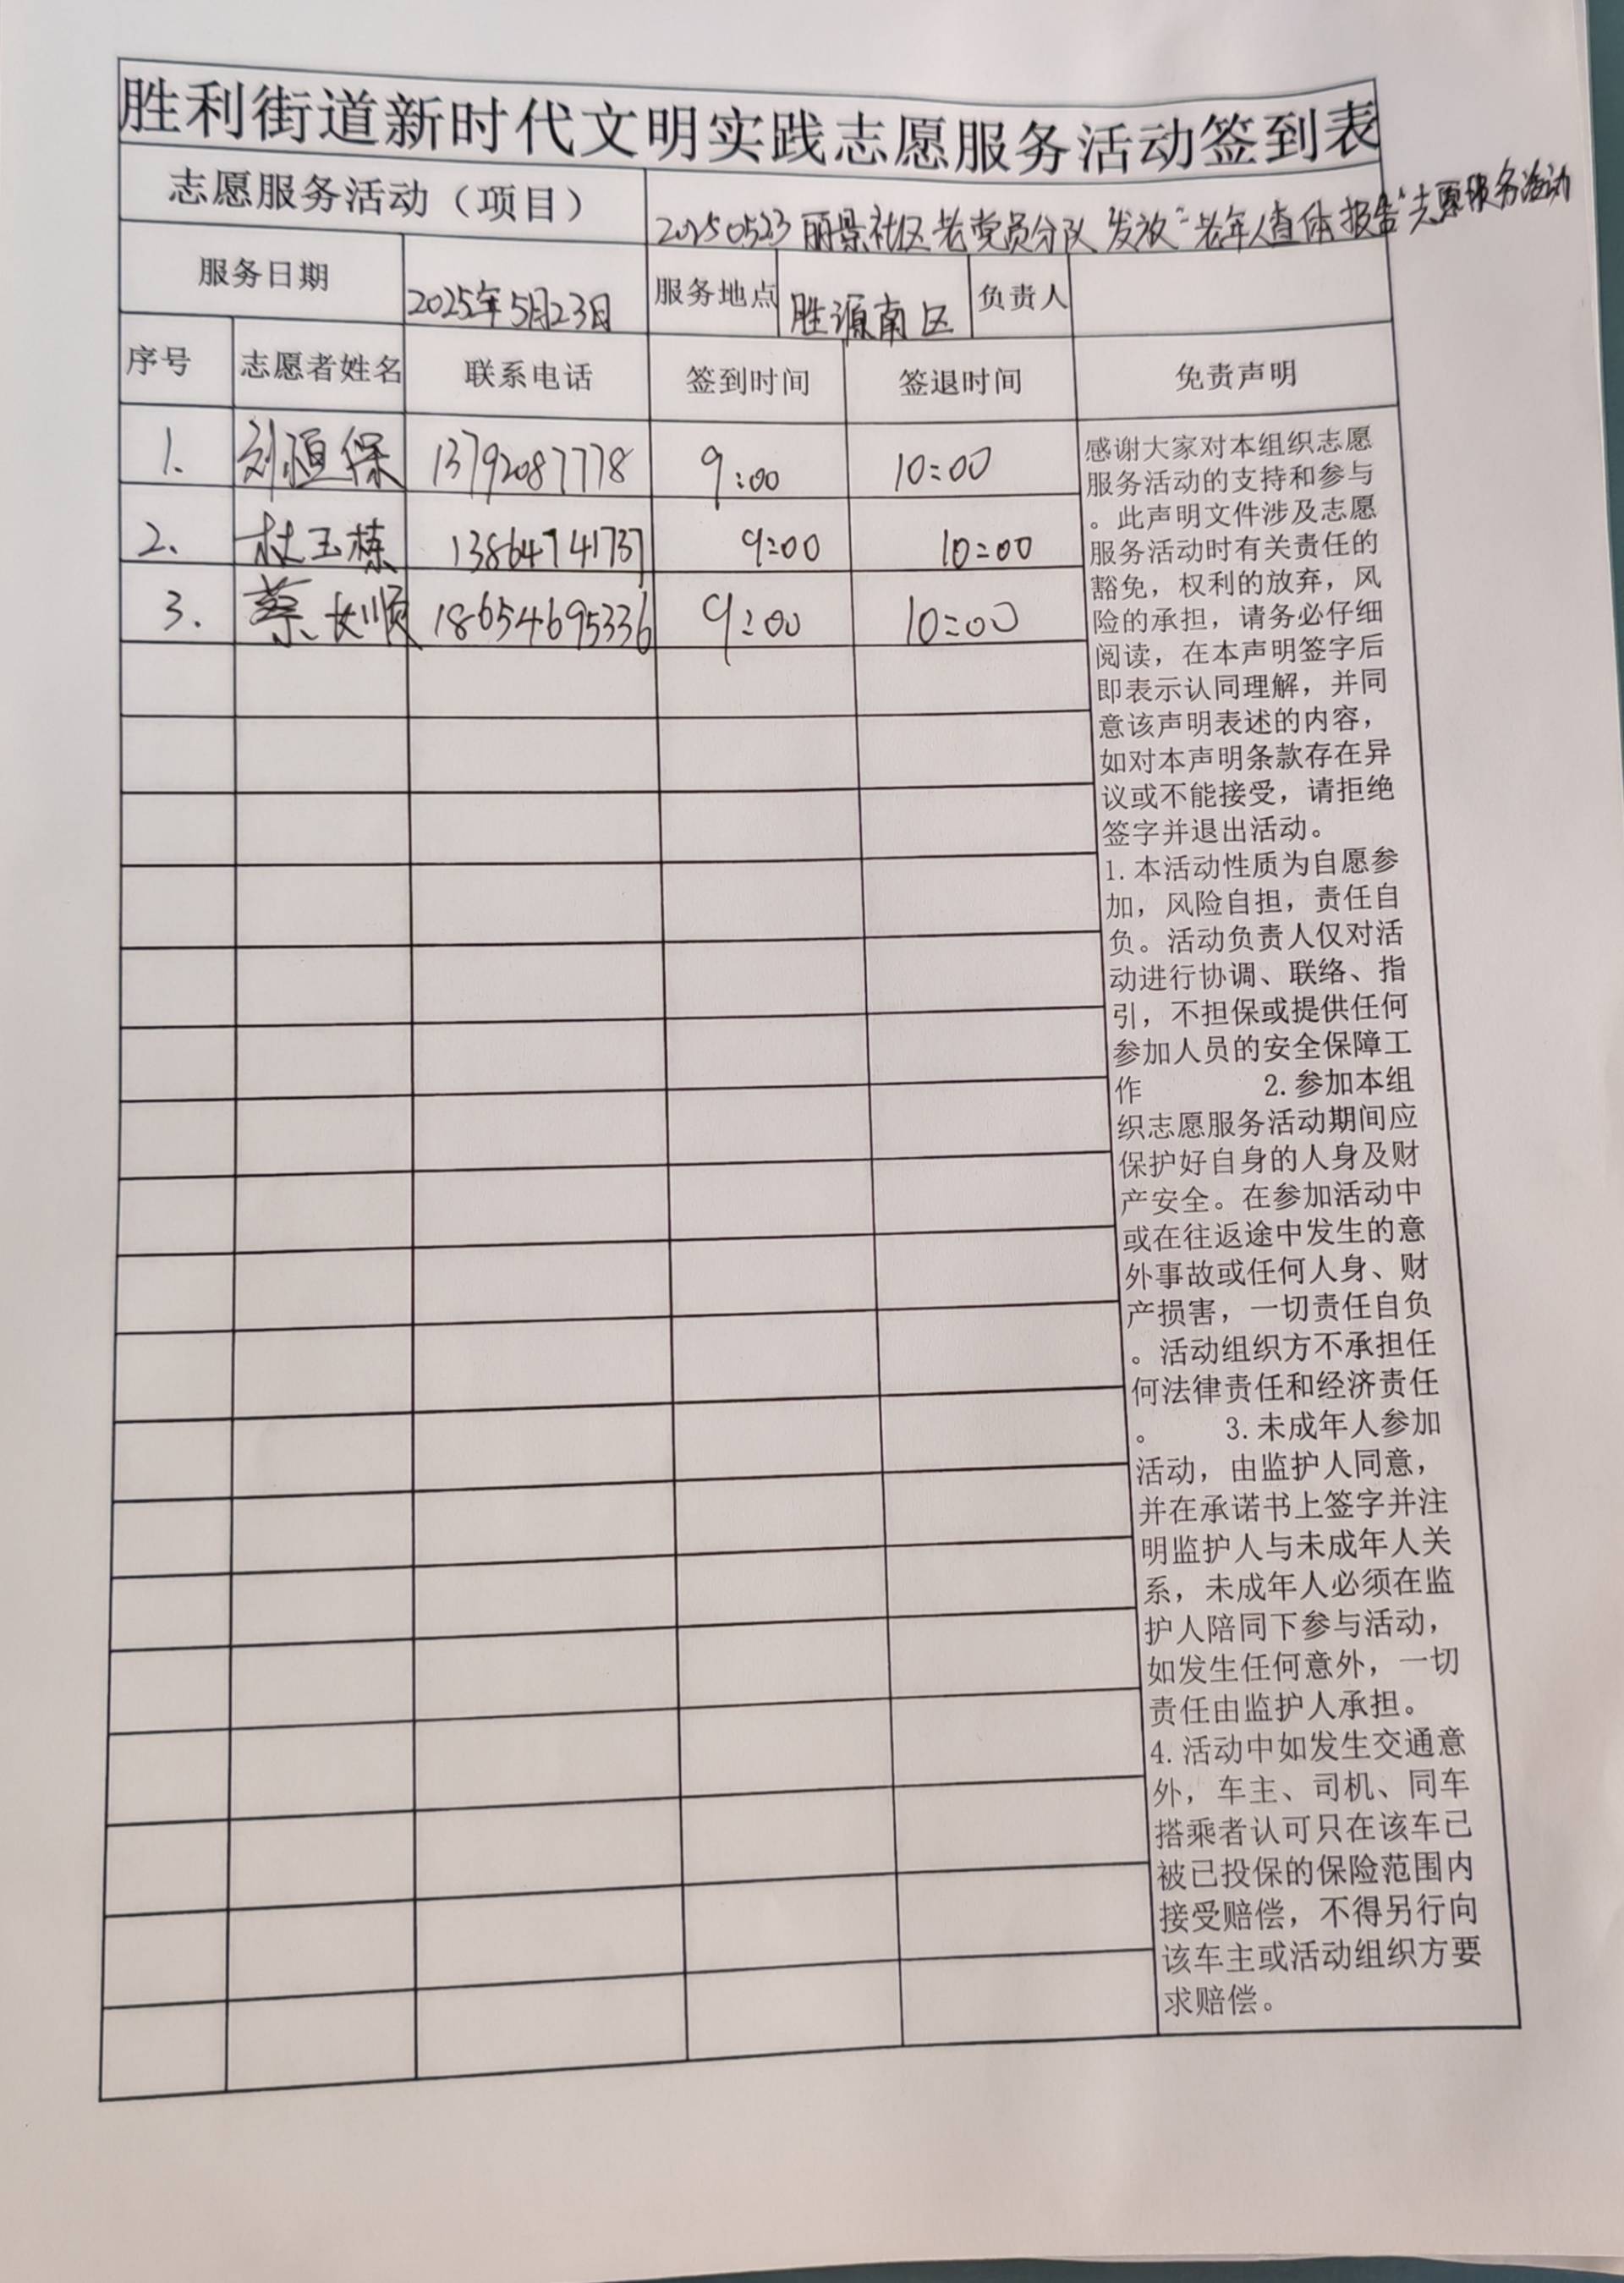 胜利街道新时代文明实践志愿服务活动签到表
志愿服务活动（项目） 20250523丽景社区老党员分队"发放"老年人查体报告"志愿服务活动
服务日期 2025年5月23日 服务地点 胜源南区 负责人
序号 志愿者姓名 联系电话 签到时间 签退时间 免责声明
1. 刘恒保 13792087778 9:00 10:00
2. 杜玉栋 13864741737 9:00 10:00
3. 蔡长顺 18654695336 9:00 10:00
感谢大家对本组织志愿
服务活动的支持和参与
。此声明文件涉及志愿
服务活动时有关责任的
豁免，权利的放弃，风
险的承担，请务必仔细
阅读，在本声明签字后
即表示认同理解，并同
意该声明表述的内容，
如对本声明条款存在异
议或不能接受，请拒绝
签字并退出活动。
1.本活动性质为自愿参
加，风险自担，责任自
负。活动负责人仅对活
动进行协调、联络、指
引，不担保或提供任何
参加人员的安全保障工
作 2.参加本组
织志愿服务活动期间应
保护好自身的人身及财
产安全。在参加活动中
或在往返途中发生的意
外事故或任何人身、财
产损害，一切责任自负
。活动组织方不承担任
何法律责任和经济责任
。 3.未成年人参加
活动，由监护人同意，
并在承诺书上签字并注
明监护人与未成年人关
系，未成年人必须在监
护人陪同下参与活动，
如发生任何意外，一切
责任由监护人承担。
4.活动中如发生交通意
外，车主、司机、同车
搭乘者认可只在该车已
被已投保的保险范围内
接受赔偿，不得另行向
该车主或活动组织方要
求赔偿。